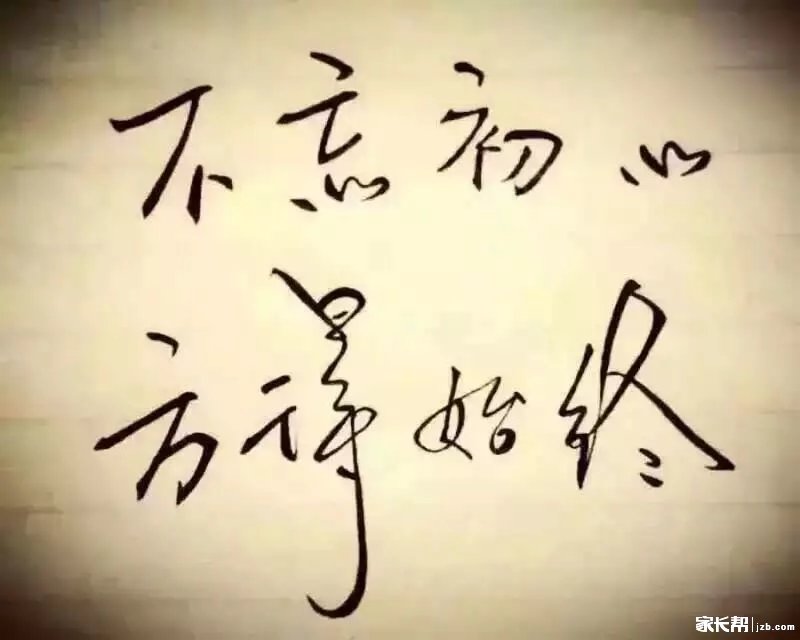 不忘初心
方得始终
家长帮 jzb.com